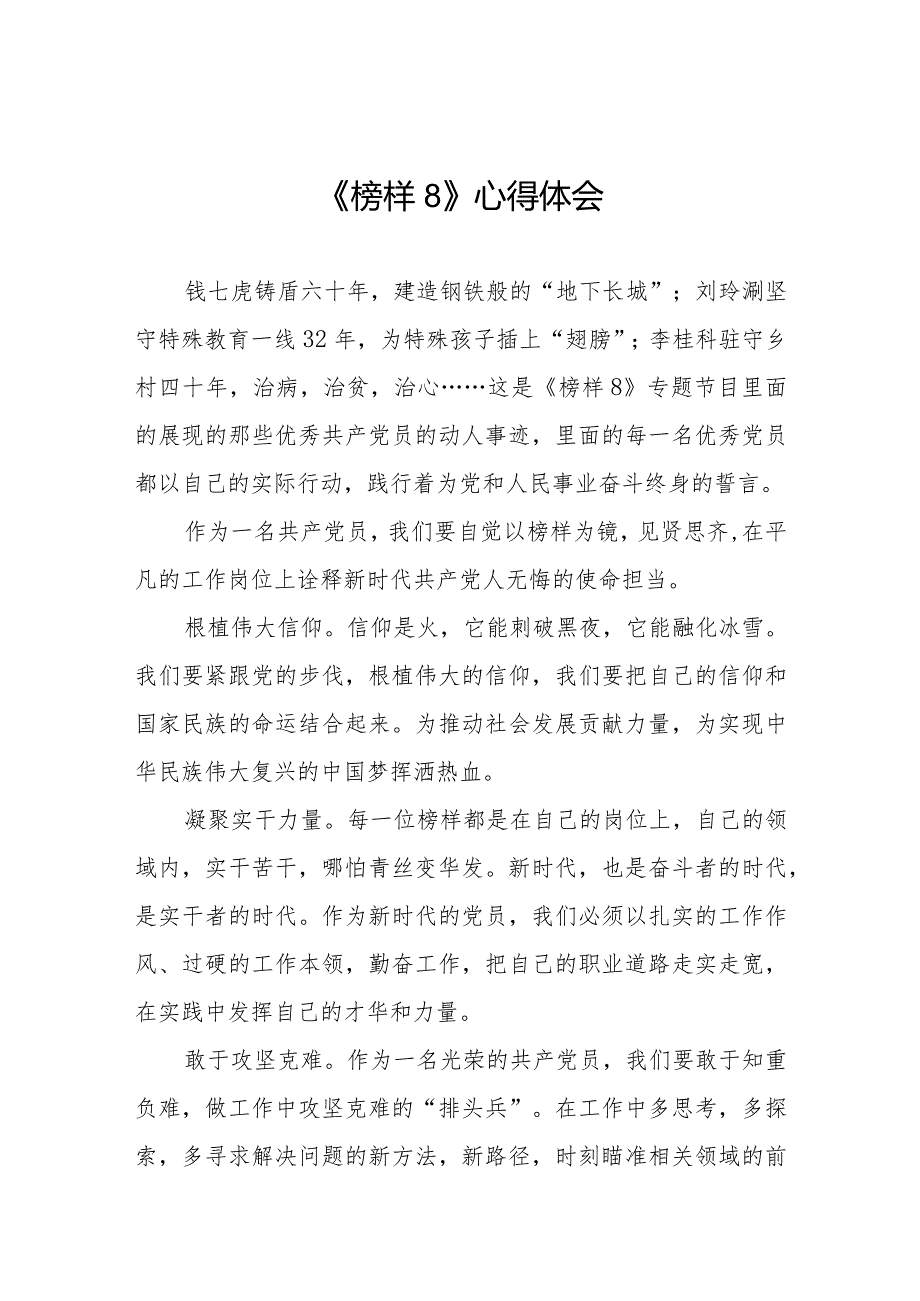 《榜样8》心得体会
钱七虎铸盾六十年，建造钢铁般的“地下长城”；刘玲涮坚
守特殊教育一线32年，为特殊孩子插上“翅膀”；李桂科驻守乡
村四十年，治病，治贫，治心……这是《榜样8》专题节目里面
的展现的那些优秀共产党员的动人事迹，里面的每一名优秀党员
都以自己的实际行动，践行着为党和人民事业奋斗终身的誓言。
作为一名共产党员，我们要自觉以榜样为镜，见贤思齐,在平
凡的工作岗位上诠释新时代共产党人无悔的使命担当。
根植伟大信仰。信仰是火，它能刺破黑夜，它能融化冰雪。
我们要紧跟党的步伐，根植伟大的信仰，我们要把自己的信仰和
国家民族的命运结合起来。为推动社会发展贡献力量，为实现中
华民族伟大复兴的中国梦挥洒热血。
凝聚实干力量。每一位榜样都是在自己的岗位上，自己的领
域内，实干苦干，哪怕青丝变华发。新时代，也是奋斗者的时代，
是实干者的时代。作为新时代的党员，我们必须以扎实的工作作
风、过硬的工作本领，勤奋工作，把自己的职业道路走实走宽，
在实践中发挥自己的才华和力量。
敢于攻坚克难。作为一名光荣的共产党员，我们要敢于知重
负难，做工作中攻坚克难的“排头兵”。在工作中多思考，多探
索，多寻求解决问题的新方法，新路径，时刻瞄准相关领域的前